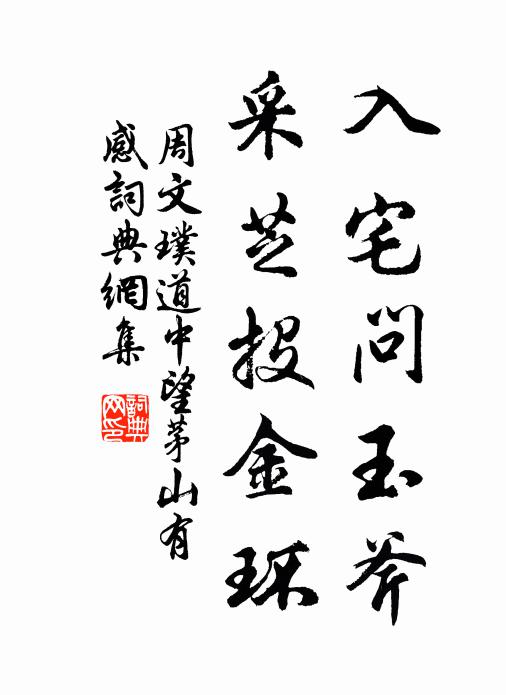 入宅問玉斧
采芝投金环
周文璞道中望茅山有
感詞典網集
詞典
网印